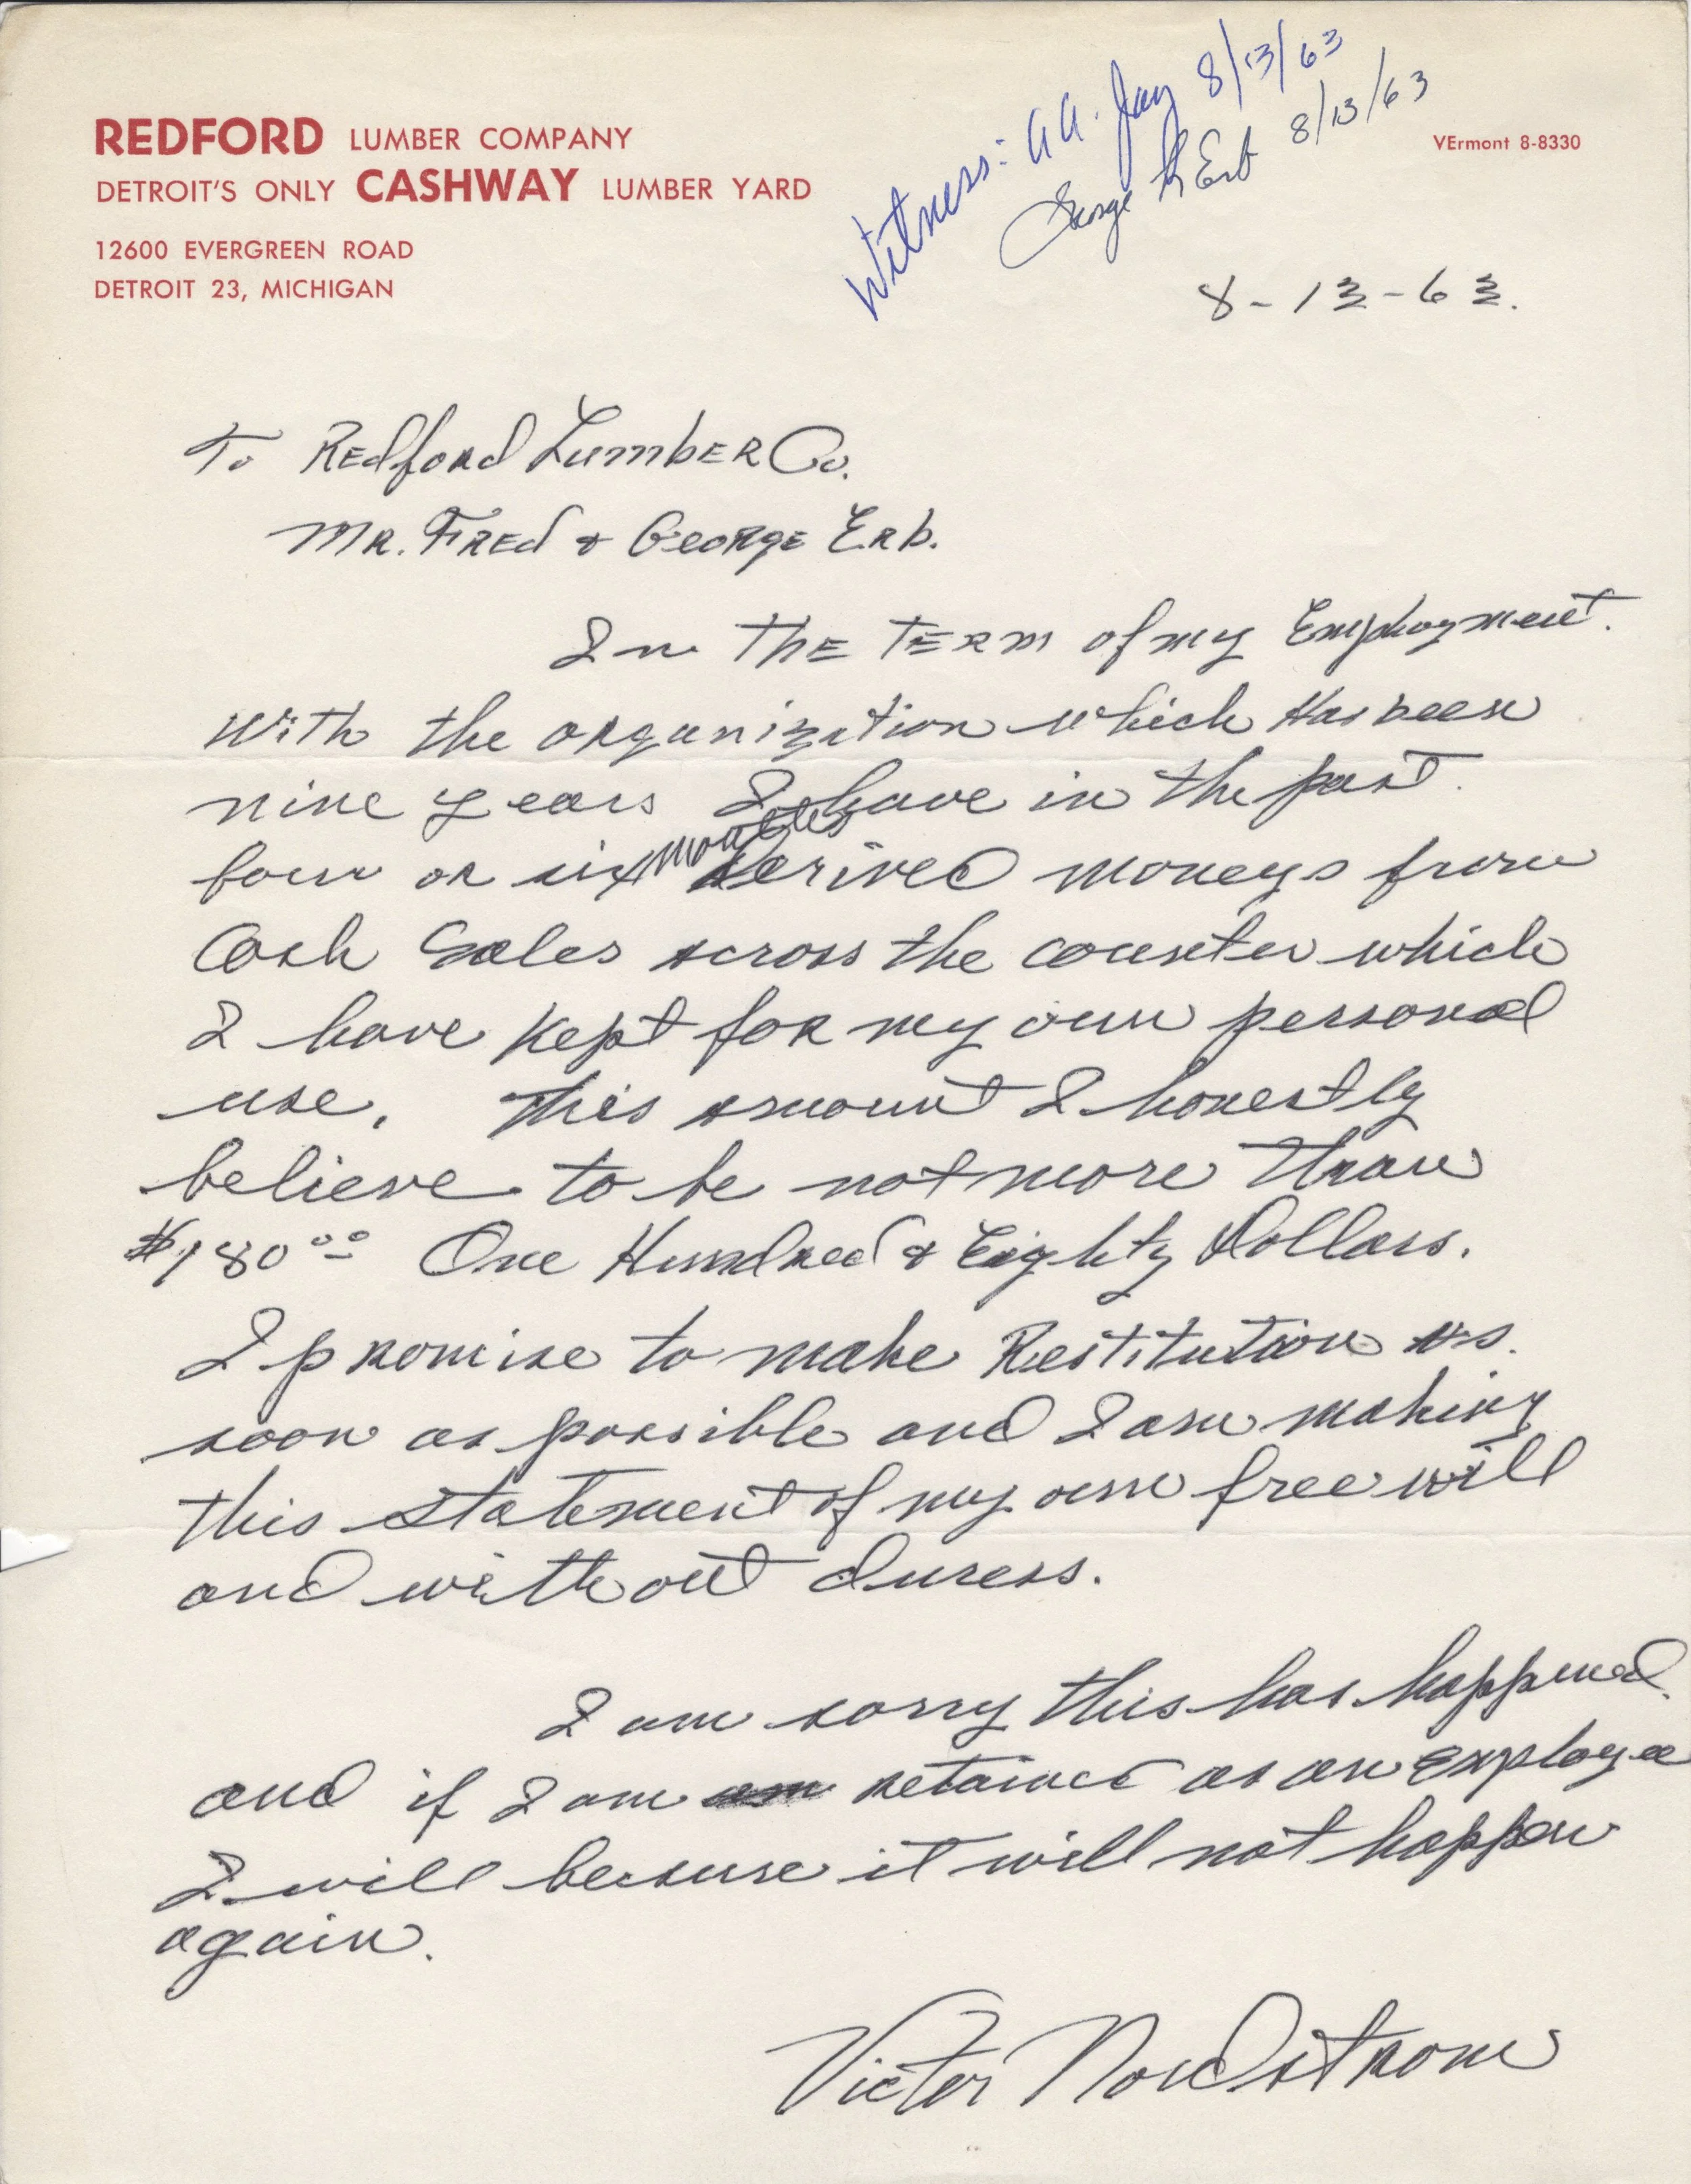 REDFORD LUMBER COMPANY
DETROIT'S ONLY CASHWAY LUMBER YARD
12600 EVERGREEN ROAD
DETROIT 23, MICHIGAN
VErmont 8-8330
Witness: 8/13/63
George Erb 8/13/63
8-13-63.
To Redford Lumber Co.
Mr. Fred & George Erb.
In The Term of my Employment.
With the organization which Has been
nine years I have in the past.
four or six months derived moneys from
Cash Sales across the counter which
I have kept for my own personal
use. This amount I honestly
believe to be not more than
$180.00 One Hundred & Eighty Dollars.
I promise to make Restitution as.
soon as possible and I am making
this statement of my own free will
and without duress.
I am sorry this has happened.
and if I am retained as an employee
I will because it will not happen
again.
Victor Nordstrom